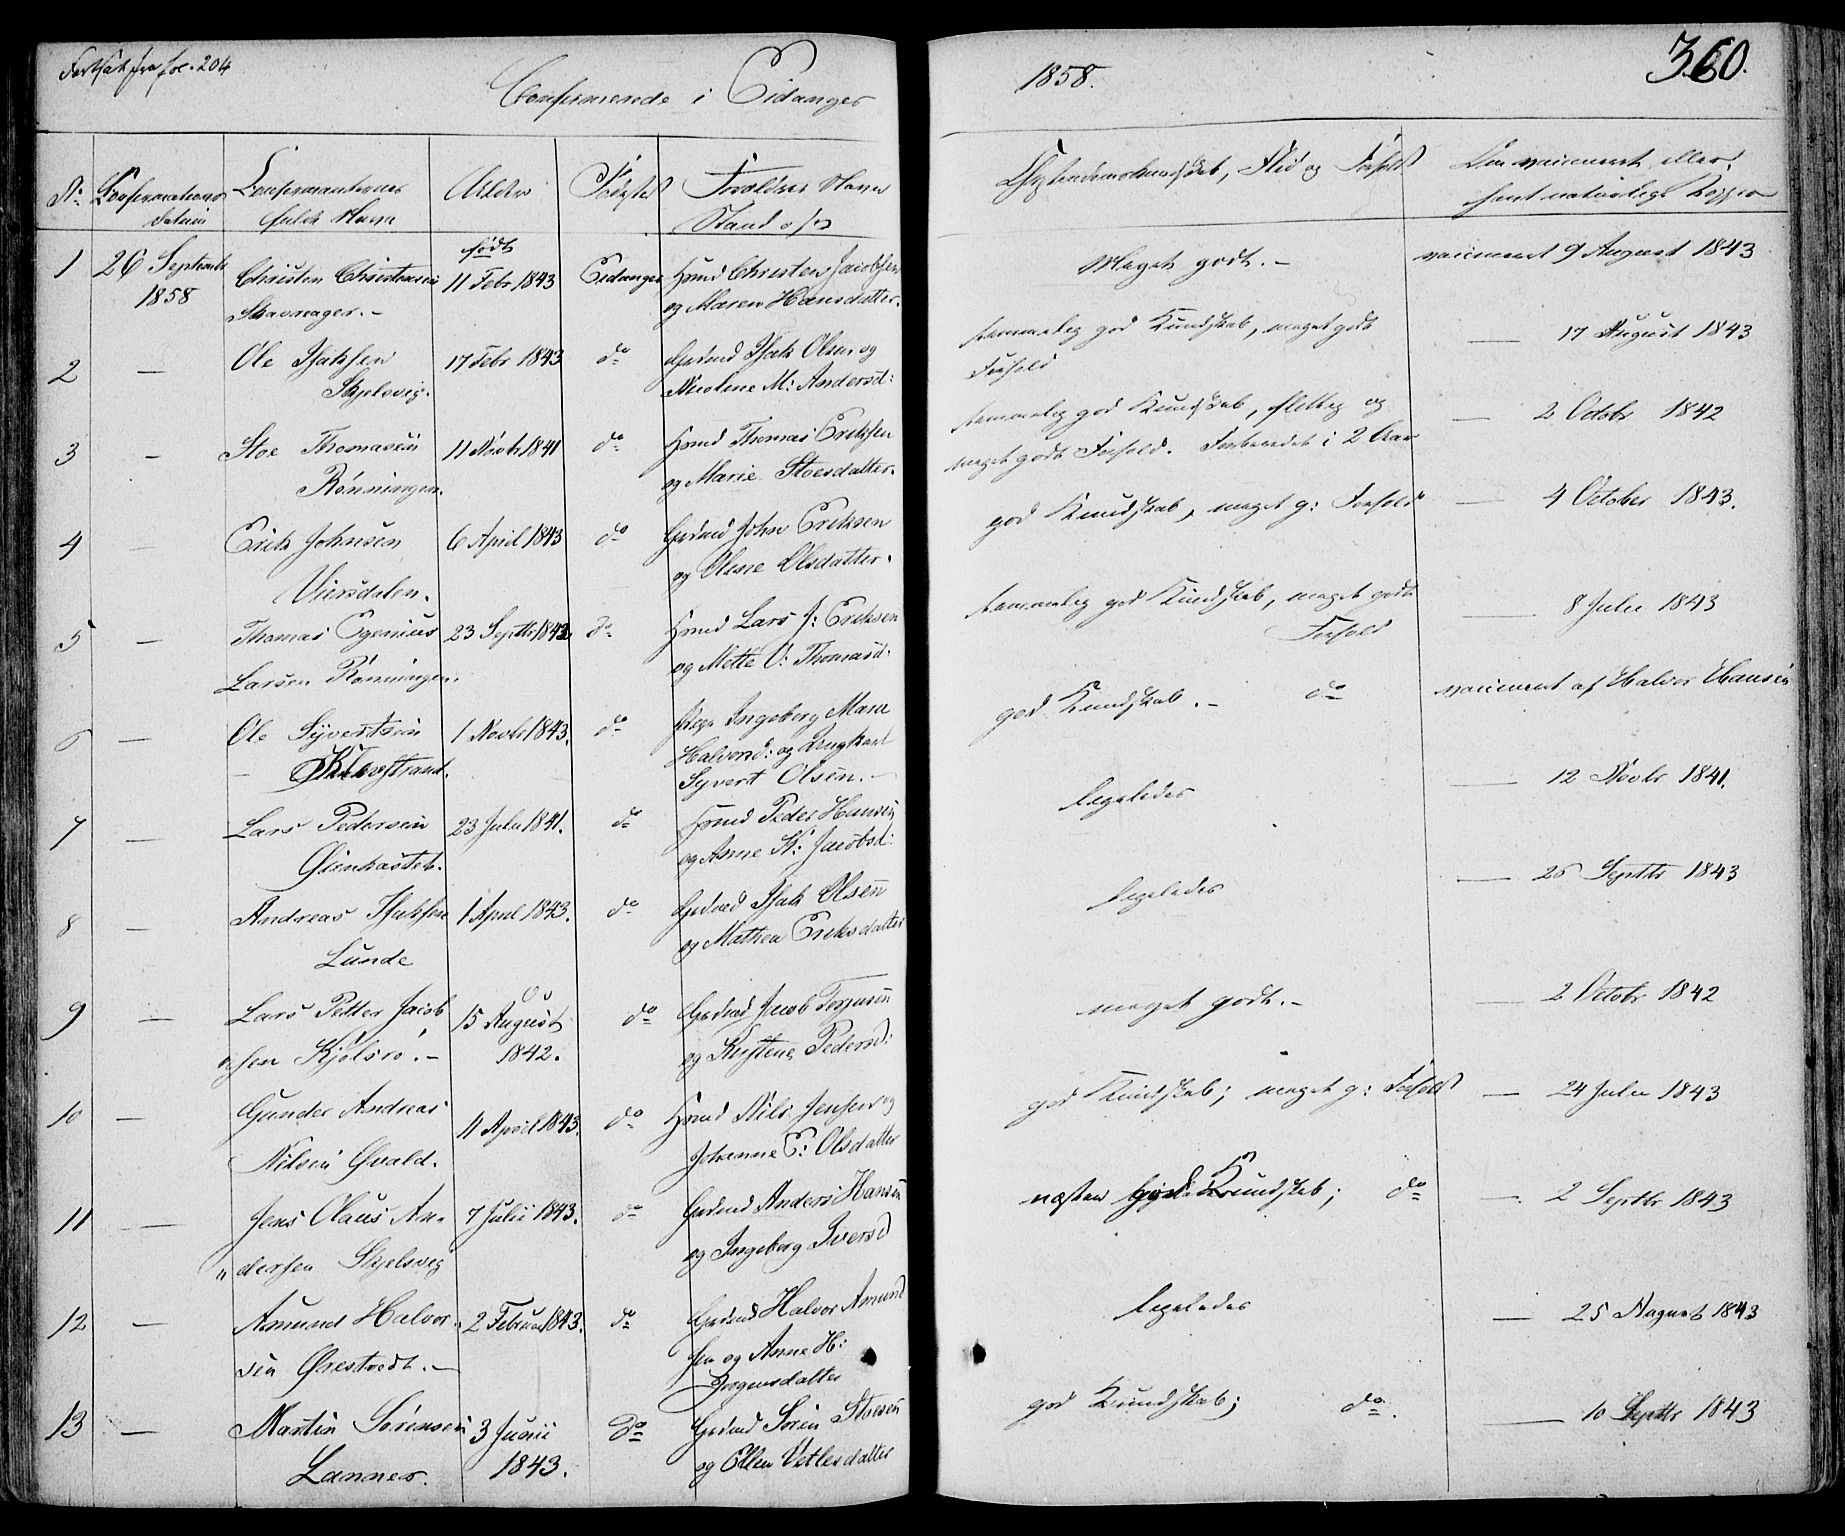 Fortsat fra fol. 204
Confirmerede i Eidanger
1858.
360.
No Confirmationens Confirmanternes Alder Fødested Forældres Navn
Datum fulde Navn Stand o s v
Christendomskundskab, Flid og Forhold
Om vaccineret eller
havt naturlige Kopper
1 26 Septembr Christen Christensen født 11 Febr 1843 Eidanger Hmd Christen Jacobsen
1858 Skavrager.- og Maren Hansdatter.
Meget godt.- vaccineret 9 August 1843
2 — Ole Isaksen 17 Febr 1843 do Gaardmd Isak Olsen og
Skjelsvig. Nicoline M: Andersd:
temmelig god Kundskab, meget godt — 17 August 1843
Forhold
3 — Stoe Thomasen 11 Novbr 1841 do Hmd Thomas Eriksen
Rønningen. og Marie Stoesdatter.
temmelig god Kundskab, flittig og — 2 Octobr 1842
meget godt Forhold. Forberedet i 2 Aar
4 — Erik Johnsen 6 April 1843 do Gaardmd John Eriksen
Viersdalen. og Olene Olsdatter.
god Kundskab, meget g: Forhold — 4 October 1843.
5 — Thomas Egenius 23 Septbr 1842 do Hmd Lars J: Eriksen
Larsen Rønningen. og Mette V: Thomasd:
temmelig god Kundskab, meget godt — 8 Julii 1843
Forhold
6 — Ole Syvertsen 1 Novbr 1843. do Pige Ingeborg Marie
Klevstrand. Halvorsd: og Ungkarl
Syvert Olsen.-
god Kundskab.- do vaccineret af Halvor Hansen
7 — Lars Pedersen 23 Julii 1841. do Hmd Peder Hansen
Øienkasted. og Anne K: Jacobsd:
ligeledes — 12 Novbr 1841.
8 — Andreas Isaksen 1 April 1843. do Gaardmd Isak Olsen
Lunde og Mathea Eriksdatter
ligeledes — 26 Septbr 1843
9 — Lars Petter Jacob 15 August do Gaardmd Jacob Torjusen
sen Kjølsrø.- 1842. og Kirstine Pedersd:
meget godt.- — 2 Octobr 1842
10 — Gunder Andreas 11 April 1843. do Hmd Nils Jensen og
Nilsen Øvald. Johanne E: Olsdatter
god Kundskab; meget g: Forhold — 24 Julii 1843
11 — Jens Olaus An- 7 Julii 1843. do Gaardmd Anders Hansen
„ dersen Skjelsvig og Ingeborg Iversd
næsten god Kundskab; do — 2 Septbr 1843
12 — Amund Halvor- 2 Februar 1843. do Gaardmd Halvor Amund
sen Ørestvedt.- sen og Anne H:
Jørgensdatter
ligeledes — 25 August 1843
13 — Martin Sørensen 3 Junii do Gaardmd Søren Stoesen
Lanner. 1843. og Ellen Vetlesdatter
god Kundskab; do. — 10 Septbr 1843